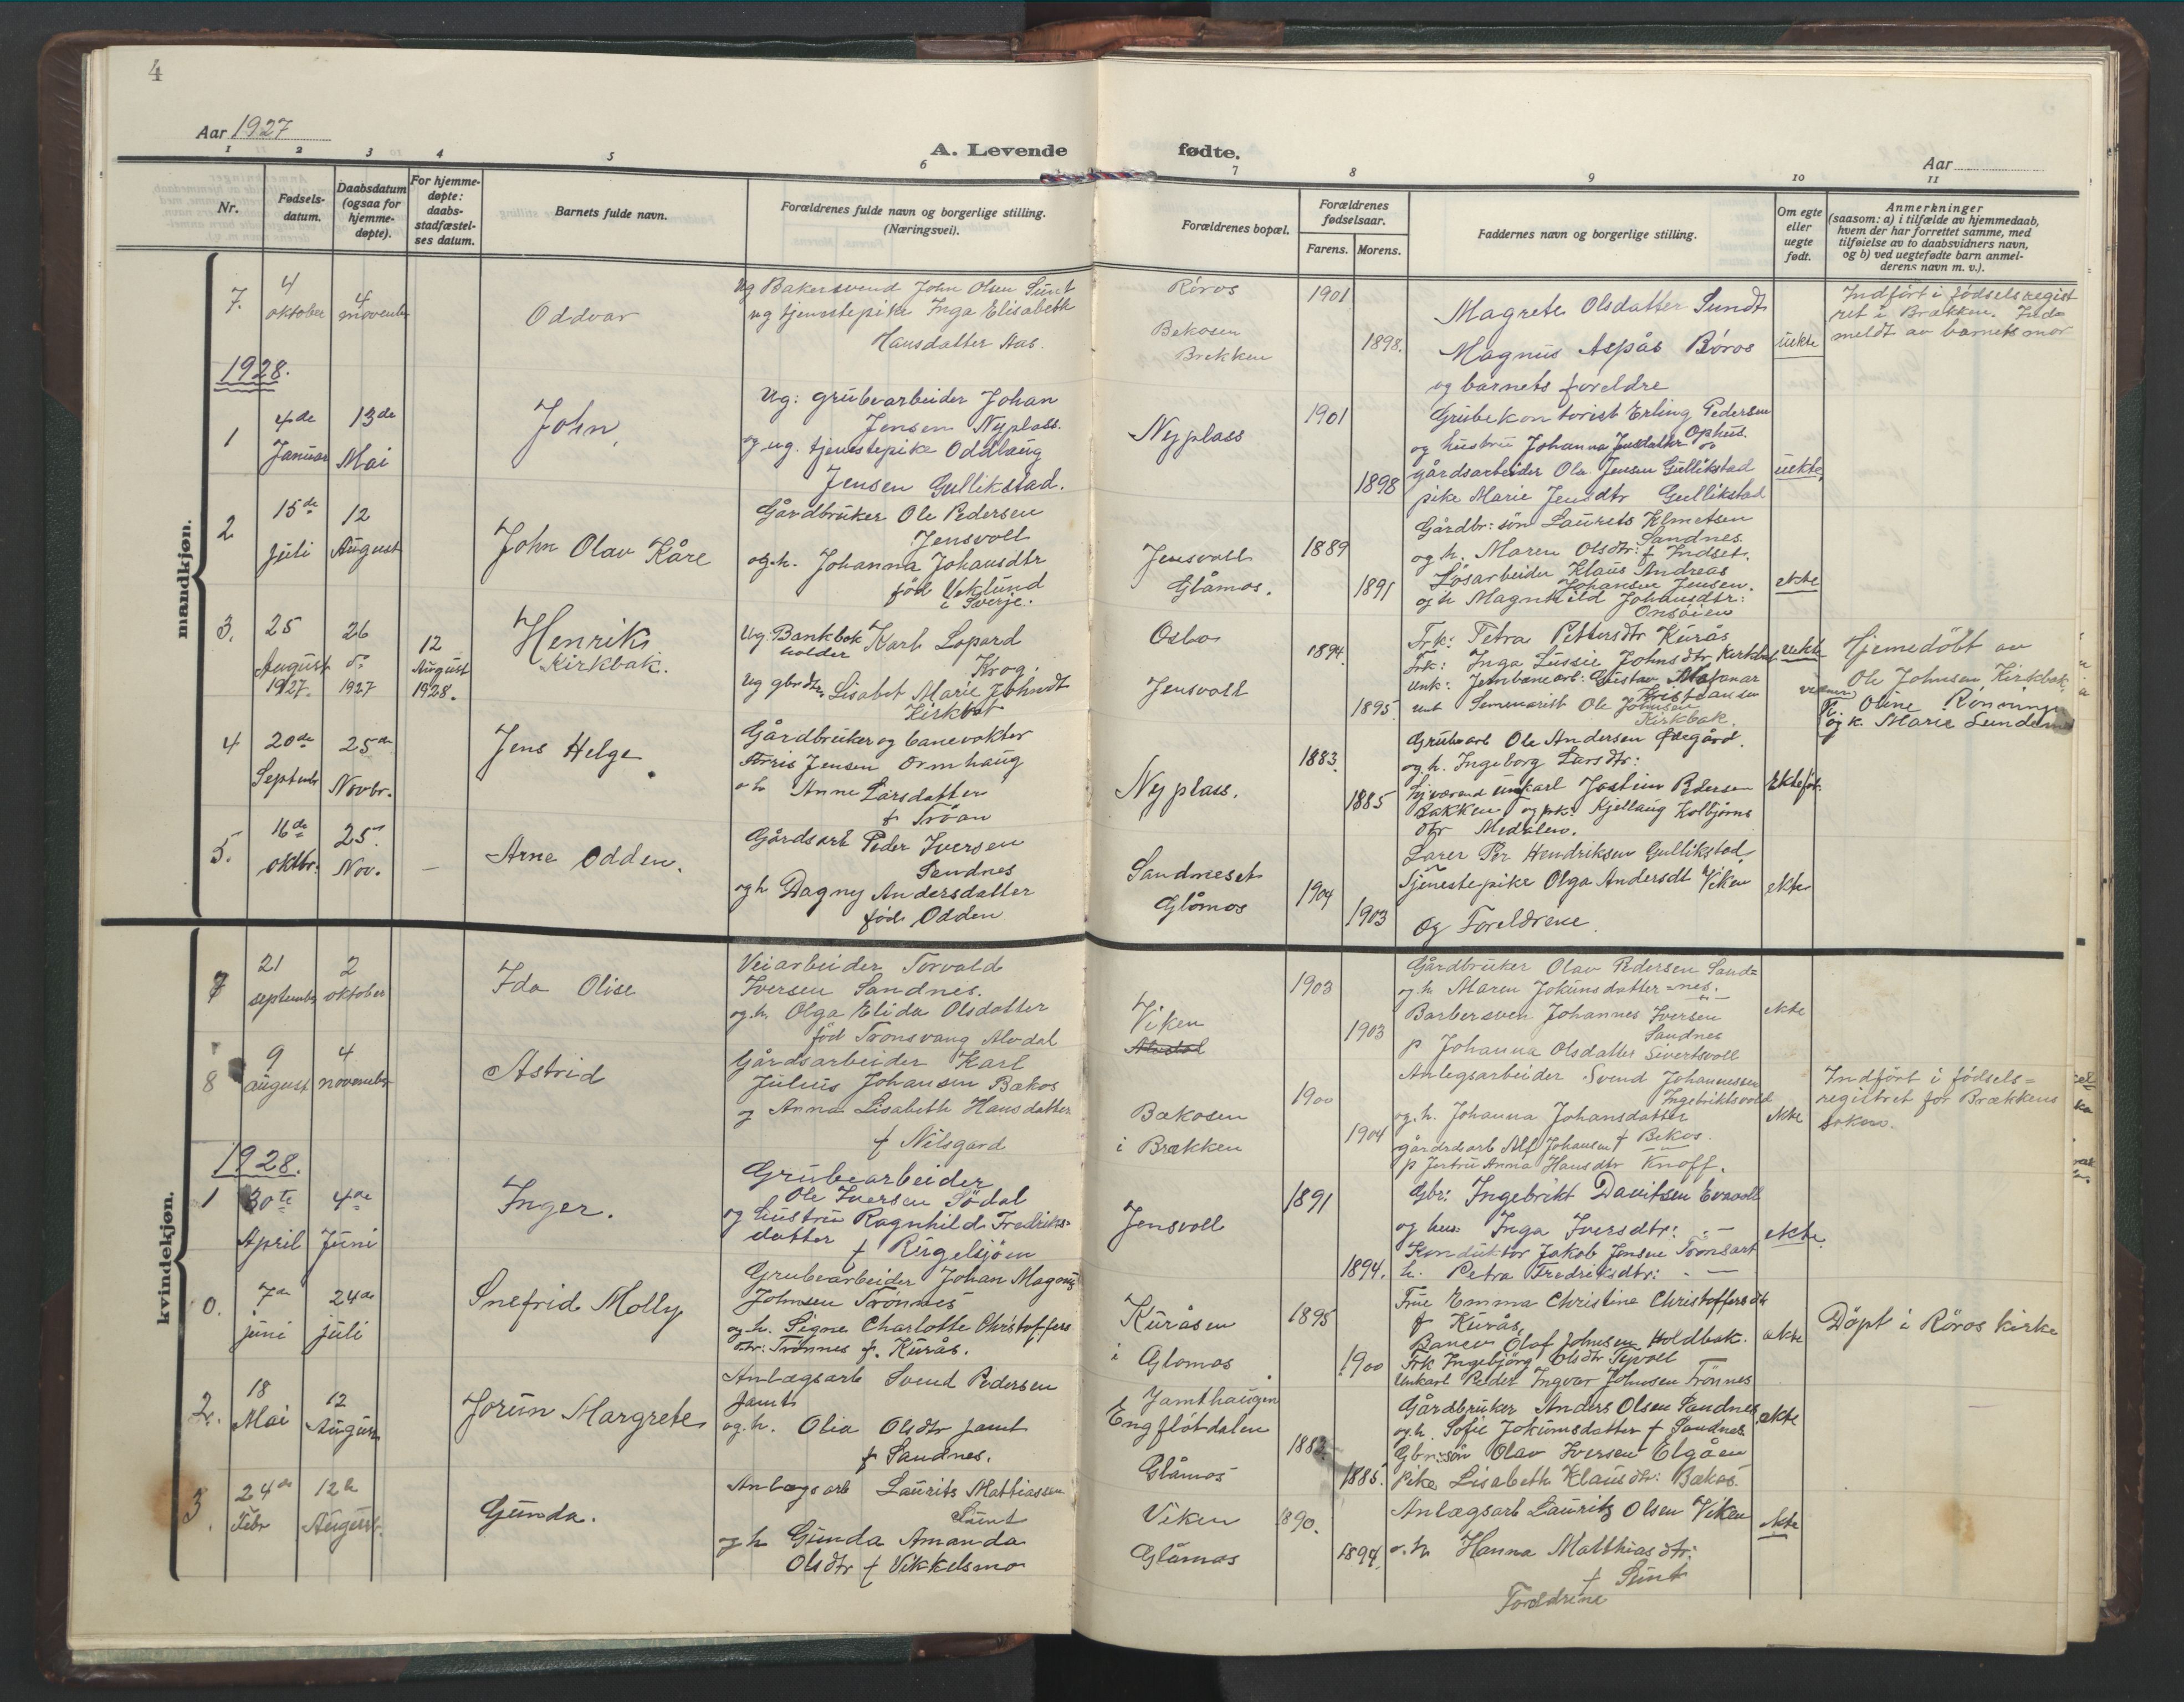 4
Aar 1927
A. Levende fødte.
Aar
1 2 3 4 5 6 7 8 9 10 11
Nr.
Fødsels-
datum.
Daabsdatum
(ogsaa for
hjemme-
døpte).
For hjemme-
døpte:
daabs-
stadfæstel-
ses datum.
Barnets fulde navn.
Forældrenes fulde navn og borgerlige stilling.
(Næringsvei).
Forældrenes bopæl.
Forældrenes
fødselsaar.
Farens. Morens.
Faddernes navn og borgerlige stilling.
Om egte
eller
uegte
født.
Anmerkninger
(saasom: a) i tilfælde av hjemmedaab,
hvem der har forrettet samme, med
tilføielse av to daabsvidners navn,
og b) ved uegtefødte barn anmel-
derens navn m. v.).
mandkjøn.
7.
4
oktober
4
november
Oddvar
Ug Bakersvend John Olsen Sunt
ug tjenestepike Inga Elisabeth
Hansdatter Aas.
Røros
Bekosen
Brekken
1901
1898.
Magrete Olsdatter Sundt
Magnus Aspås Røros
og barnets foreldre
uekte
Indført i fødselsregist
ret i Brækken. Ind=
meldt av barnets mor
1928.
1
4de
Januar
13de
Mai
John,
Ug: grubearbeider Johan
Jensen Nyplass.
og ug. tjenestepike Oddlaug
Jensen Gullikstad.
Nyplass
1901
1898
Grubekontorist Erling Pedersen
og hustru Johanna Jensdatter Ophus.
gårdsarbeider Ola Jensen Gullikstad
pike Marie Jensdtr Gullikstad
uekte,
2
15de
juli
12
August
John Olav Kåre
Gårdbruker Ole Pedersen
Jensvoll
og h. Johanna Johansdtr
født Veklund
i Sverje.
Jensvoll
Glåmos.
1889
1891
Gårdbr: søn Laurits Klmetsen
Sandnes
og h. Maren Olsdtr: f Indset.
Løsarbeider Klaus Andreas
Johansen Jensen.
og h Magnhild Johansdtr:
Onsøien
ekte
3.
25
August
1927.
26
do
1927
12
August
1928.
Henrik
Kirkbak.
Ug. Bankbok
holder Karl Lopard
Krog.
ug gbrdtr Lisabet Marie Johnsdt
Kirkbak
Oslo
Jensvoll
1894.
1895
Frk: Petra Pettersdtr Kurås
Frk: Inga Lussie Johnsdtr Kirkbak
Unk: Jernbanearb: Gustav
Kristiansen
unk Seminarist Ole Johnsen
Kirkbak.
uekte
Hjemedöbt av
Ole Johnsen Kirkbak
vidner
K. Oline Rønninge
og k. Marie Sundem
4
20de
Septembr
25de
Novbr.
Jens Helge
Gårdbruker og banevokter
Tørris Jensen Ormhaug
o h Anne Larsdatter
f Trøan
Nyplass.
1883.
1885
Grubearb Ole Andersen Ødegård.
og h. Ingeborg Larsdtr:
hjv værende ungkarl Jostein Pedersen
Bakken og pk: Kjellaug Kolbjørns
dtr Medalen.
Ektefø.
5.
16de
oktbr.
25.
Nov.
—
Arne Odden.
Gårdsarb Peder Iversen
Sandnes
og h Dagny Andersdatter
født Odden
Sandneset
Glåmos
1904
1903
Lærer Per Hendriksen Gullikstad
Tjenestepike Olga Andersdt Viken
og Foreldrene.
ekte
kvindekjøn.
7
21
septembr
2
oktober
Ida Olise
Veiarbeider Torvald
Iversen Sandnes.
og h. Olga Elida Olsdatter
født Tronsvang Alvdal
Viken
Alvdal
1903
1903
Gårdbruker Olav Pedersen Sand=
og h. Maren Jokumsdatter =nes.
Barbersven Johannes Iversen
Sandnes
p Johanna Olsdatter Sivertsvoll
ekte
8
9
august
4
november
Astrid
Gårdsarbeider Karl
Julius Johansen Bækos
og Anna Lisabeth Hansdatter
f Nilsgard
Bækosen
i Brækken
1900
1904
Anlegsarbeider Svend Johannessen
Ingebriktsvold
og h. Johanna Johansdatter
f Bekos.
gårdsarb Alf Johansen — " —
p Jertru Anna Hansdtr Knoff.
ekte
Indført i fødsels=
registret for Brækkens
sokn.
1928.
1
30te
April
4de
Juni
Inger.
Grubearbeider
Ole Iversen Södal
og hustru Ragnhild Fredriks=
datter f Rugelsjøen
Jensvoll
1891
1894.
Gbr: Ingebrikt Davitsen Evavoll
og hus: Inga Iversdtr: " —
Konduktør Jakob Jensen Trønsart
h. Petra Fredriksdtr: - —
ekte.
0.
7de
juni
24de
juli
Snefrid Molly
Grubearbeider Johan Magnus
Johnsen Trønnes
og h. Signe Charlotte Christoffers
dtr: Trønnes f. Kurås.
Kuråsen
i Glomos
1895
1900
Frue Emma Christine Christoffersdtr
f Kurås,
Banev Olaf Johnsen Holdbak.
Frk Ingebjørg Olsdtr Tevoll
Unkarl Peder Ingvar Johnsen Trønnes
ekte
Döpt i Röros kirke
2.
18
Mai
12
August
Jorun Margrete
Anlægsarb Svend Pedersen
Jamt
og h. Olia Olsdtr Jamt
f Sandnes.
Jamthaugen
Engfløtdalen
Glåmos
1883
1885.
Gårdbruker Anders Olsen Sandnes
og h. Sofie Jokumsdatter f Sandnes
Gbr:søn Olav Iversen Elgåen
pike Lisabeth Klausdtr: Bækos.
ekte
3.
24de
Febr
12te
August.
Gunda.
Anlægsarb Laurits Mattiassen
Sunt
og h Gunda Amanda
Olsdtr f Vikkelsmo
Viken
Glåmos
1890.
1894.
Anlægsarb Lauritz Olsen Viken
o. h Hanna Matthiasdtr:
f Sunt
Forældrene
ekte